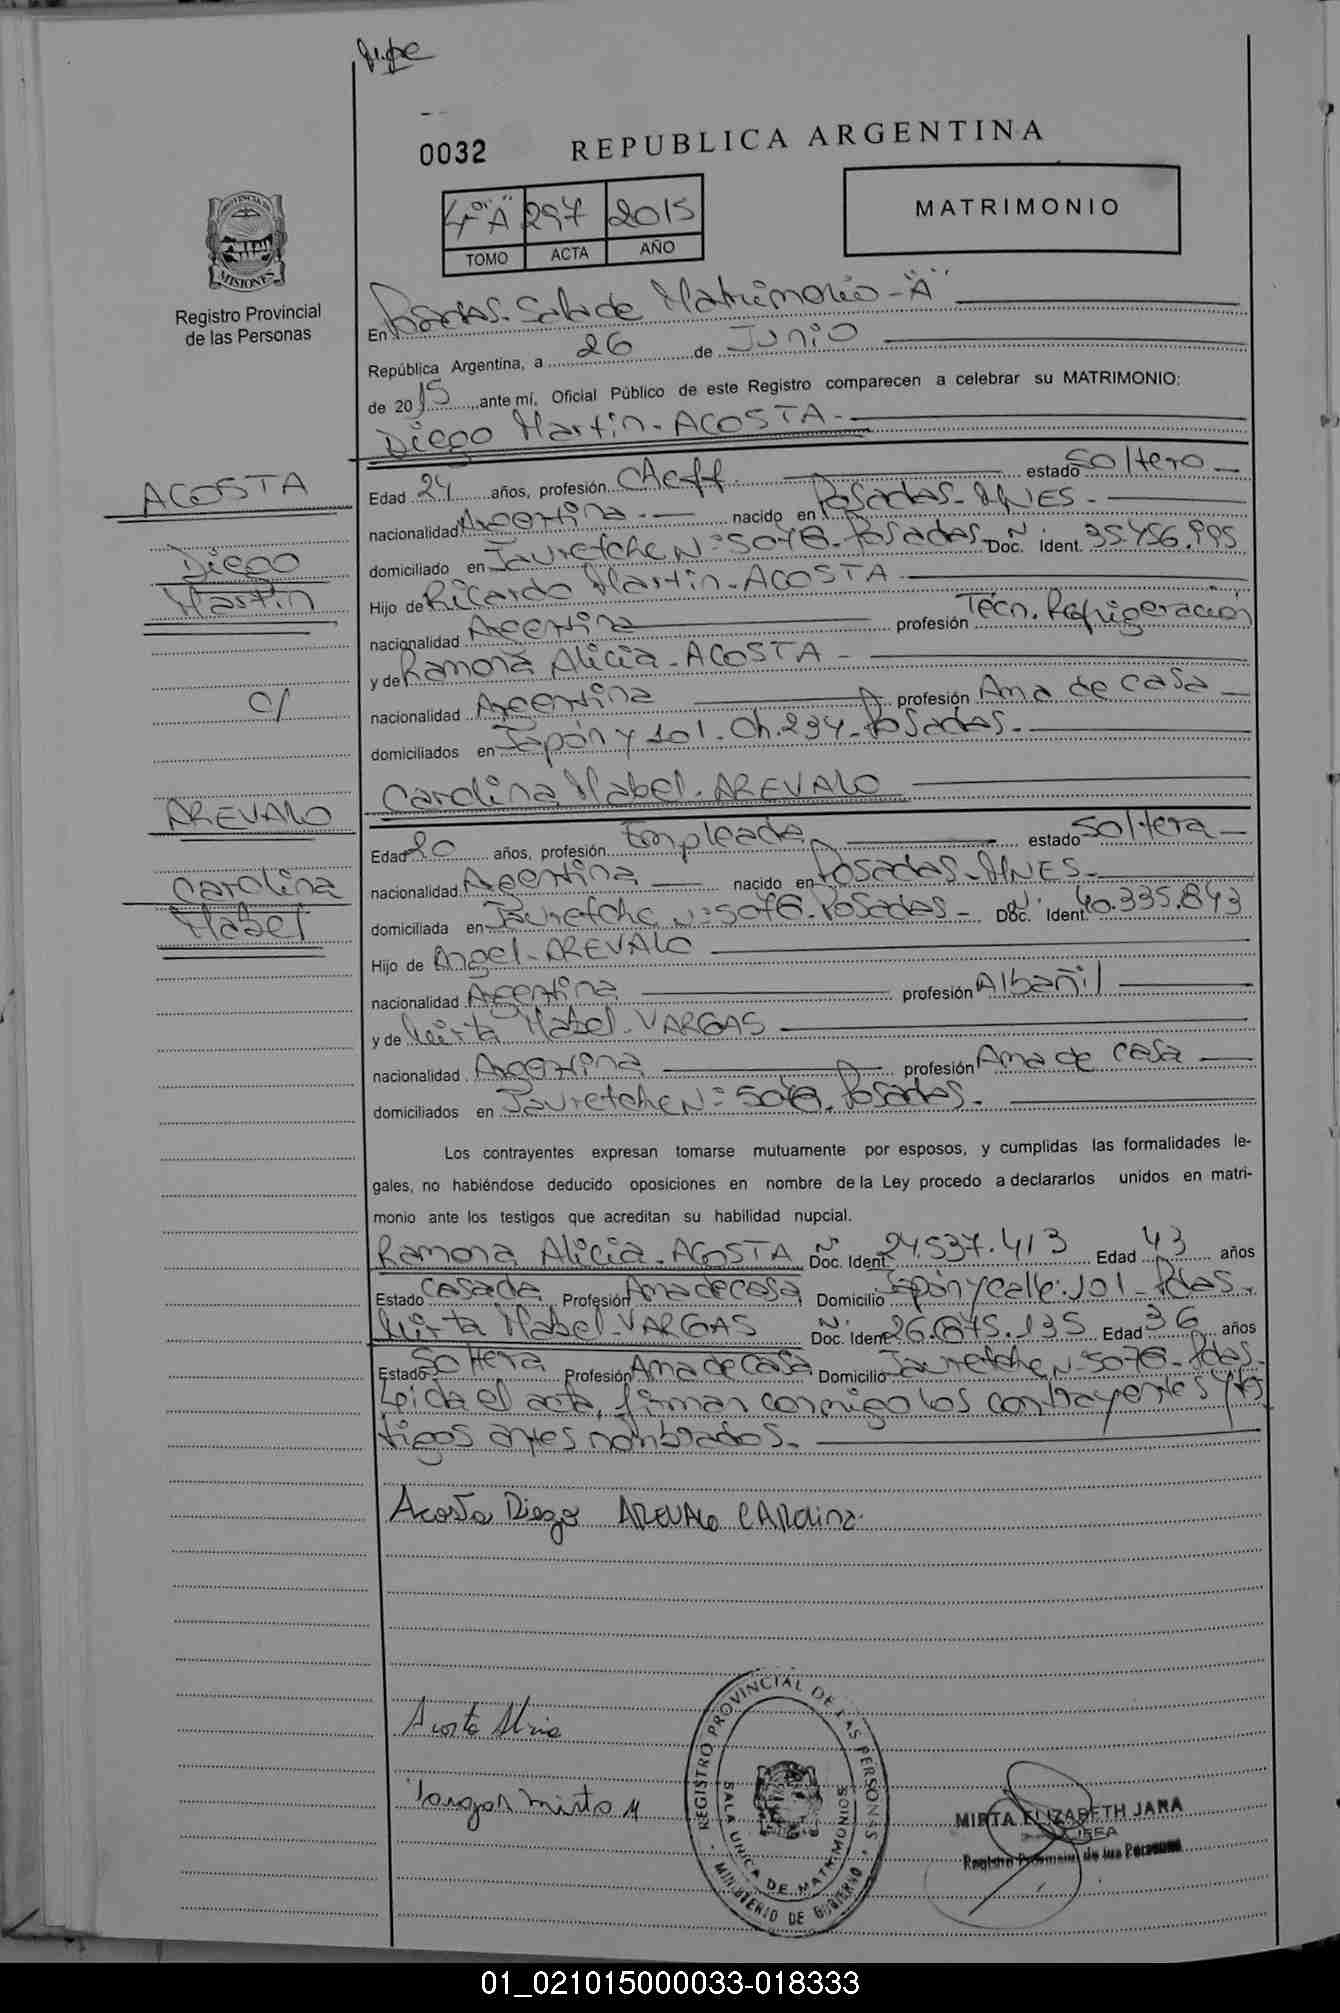 0032 REPUBLICA ARGENTINA
4° "A" 297 2015
TOMO ACTA AÑO
MATRIMONIO
MISIONES
Registro Provincial
de las Personas
En Posadas. Sala de Matrimonio - "A"
República Argentina, a 26 de Junio
de 2015, ante mí, Oficial Público de este Registro comparecen a celebrar su MATRIMONIO:
Diego Martin - ACOSTA -
ACOSTA
Diego
Martin
c/
AREVALO
Carolina
Mabel
Edad 24 años, profesión Cheff. estado Soltero
nacionalidad Argentina - nacido en Posadas - MNES -
domiciliado en Jauretche N° 5076 - Posadas Doc. Ident. N° 35.456.995
Hijo de Ricardo Martin - ACOSTA
nacionalidad Argentina profesión Tecn. Refrigeración
y de Ramona Alicia - ACOSTA -
nacionalidad Argentina profesión Ama de casa
domiciliados en Japón y 101. Ch. 234 - Posadas.
Carolina Mabel - AREVALO
Edad 20 años, profesión Empleada estado Soltera
nacionalidad Argentina nacido en Posadas - MNES -
domiciliada en Jauretche N° 5076 - Posadas - Doc. Ident. N° 40.335.843
Hijo de Angel - AREVALO
nacionalidad Argentina profesión Albañil
y de Mirta Mabel - VARGAS
nacionalidad Argentina profesión Ama de casa
domiciliados en Jauretche N° 5076 - Posadas.
Los contrayentes expresan tomarse mutuamente por esposos, y cumplidas las formalidades le-
gales, no habiéndose deducido oposiciones en nombre de la Ley procedo a declararlos unidos en matri-
monio ante los testigos que acreditan su habilidad nupcial.
Ramona Alicia - ACOSTA Doc. Ident. N° 24.537.413 Edad 43 años
Estado Casada Profesión Ama de casa Domicilio Japón y calle: 101 - Pdas.
Mirta Mabel - VARGAS Doc. Ident. N° 26.675.135 Edad 36 años
Estado Soltera Profesión Ama de casa Domicilio Jauretche N° 5076 - Pdas.
Leida el acta, firman conmigo los contrayentes y tes
tigos antes nombrados.
Acosta Diego AREVALO CAROlina
Acosta Alicia
Vargas Mirta M
REGISTRO PROVINCIAL DE LAS PERSONAS
SALA UNICA DE MATRIMONIOS
MINISTERIO DE GOBIERNO
MIRTA ELIZABETH JARA
Registro Provincial de las Personas
01_021015000033-018333